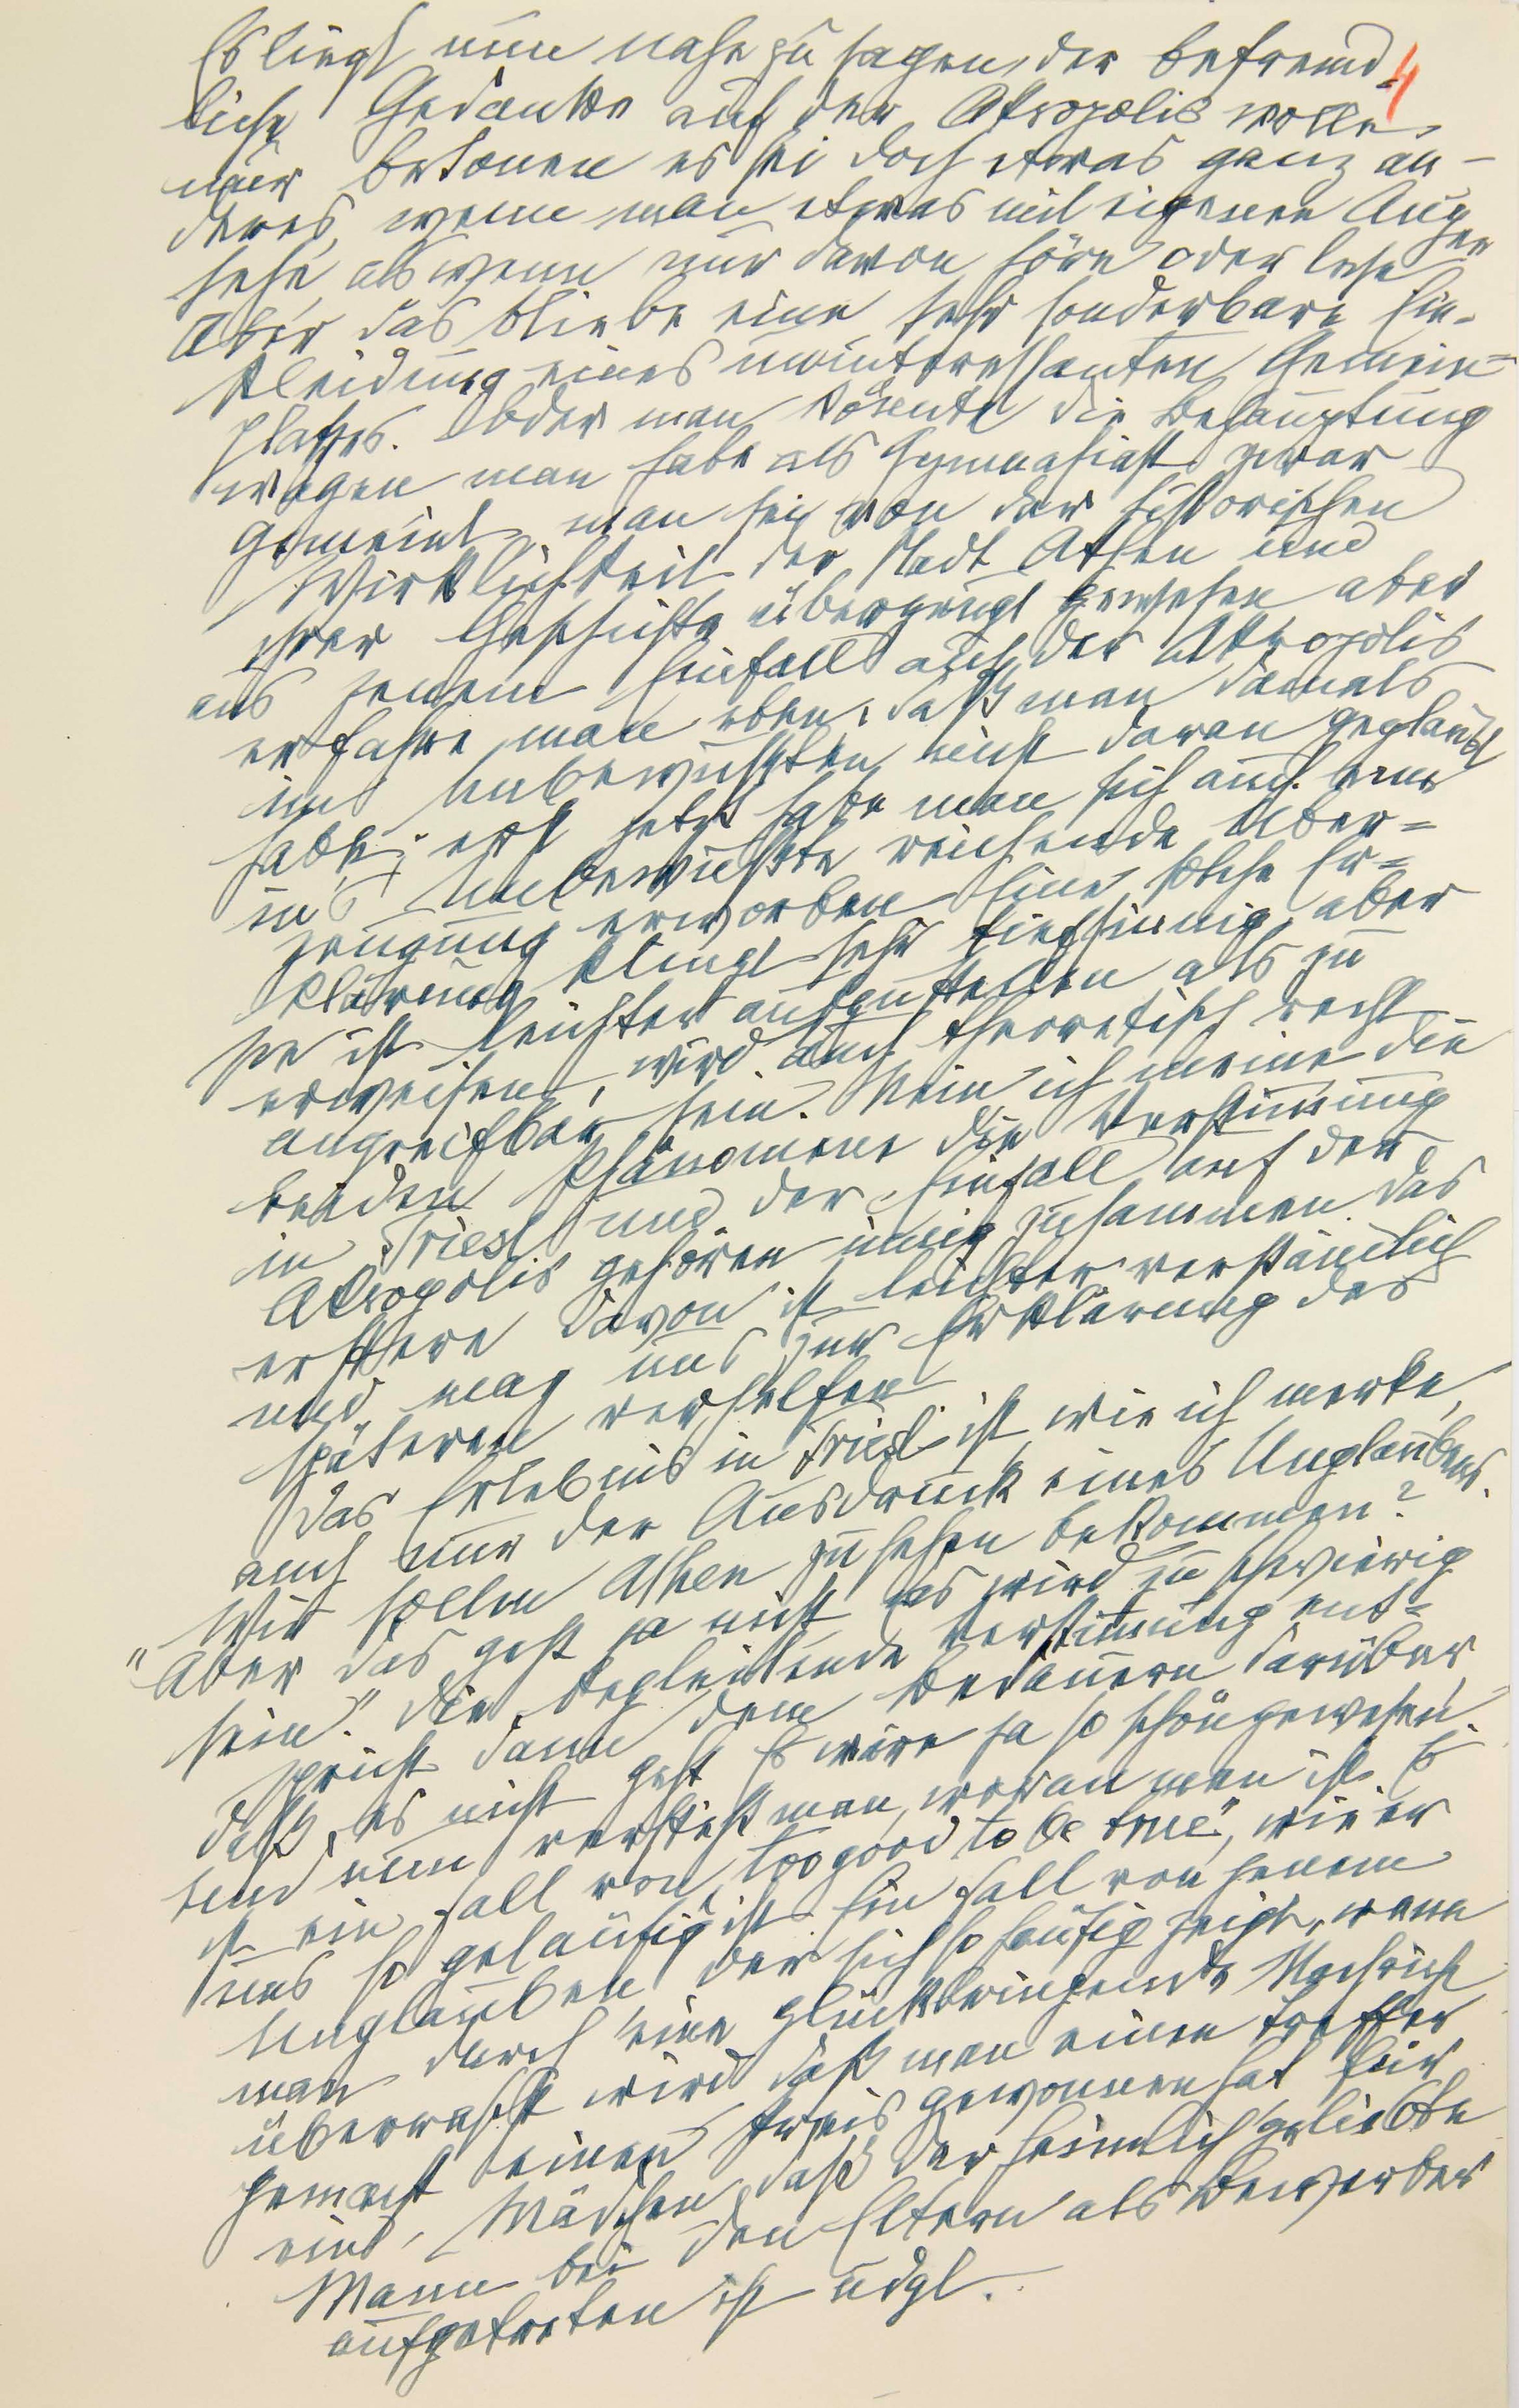 Es liegt nun nahe zu sagen, der befremd- 4
liche Gedanke auf der Akropolis wolle
nur betonen es sei doch etwas ganz an-
deres, wenn man etwas mit eigenen Augen
sehe, als wenn nur davon höre oder lese
Aber das bliebe eine sehr sonderbare Ein-
kleidung eines uninteressanten Gemein-
platzes. Oder man könnte die Behauptung
wagen man habe als Gymnasiast zwar
gemeint, man sei von der historischen
Wirklichkeit der Stadt Athen und
ihrer Geschichte überzeugt gewesen aber
aus jenem Einfall auf der Akropolis
erfahre man eben, daß man damals
im Unbewußten nicht daran geglaubt
habe; erst jetzt habe man sich auch eine
ins Unbewußte reichende Über-
zeugung erworben Eine solche Er-
klärung klingt sehr tiefsinnig, aber
sie ist leichter aufzustellen als zu
erweisen, wird auch theoretisch recht
angreifbar sein. Nein ich meine die
beiden Phänomene die Verstimmung
in Triest und der Einfall auf der
Akropolis gehören innig zusammen. das
erstere davon ist leichter verständlich
und mag uns zur Erklärung des
späteren verhelfen
Das Erlebnis in Triest ist, wie ich merke,
auch nur der Ausdruck eines Unglaubens.
Wir sollen Athen zu sehen bekommen?
"Aber das geht ja nicht, es wird zu schwierig
sein." Die begleitende Verstimmung ent-
spricht dann dem Bedauern darüber
daß es nicht geht Es wäre ja so schön gewesen.
Und nun versteht man, woran man ist. Es
ist ein Fall von „too good to be true", wie er
uns so geläufig ist. Ein Fall von jenem
Unglauben der sich so häufig zeigt, wenn
man durch eine glückbringende Nachricht
überrascht wird daß man einen Treffer
gemacht einen Preis gewonnen hat für
ein Mädchen daß der heimlich geliebte
Mann bei den Eltern als Bewerber
aufgetreten ist udgl.